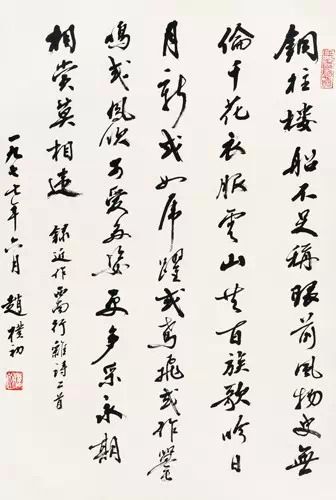 銅柱樓船不足稱眼前風物史無
倫千花衣服雲山共百族歌吟日
月新或如虎躍或鳶飛或作
鳴或鳳吹可愛多姿更多采永期
相賞莫相違 錄近作西南行雜詩二首
一九七七年六月 趙樸初